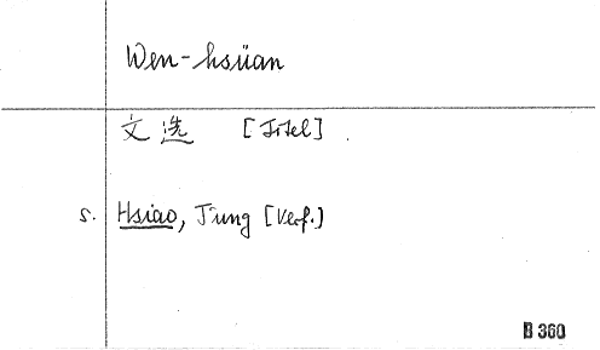 Wen-hsüan
文选 [Titel].
s. Hsiao, T'ung [Verf.]
B 360